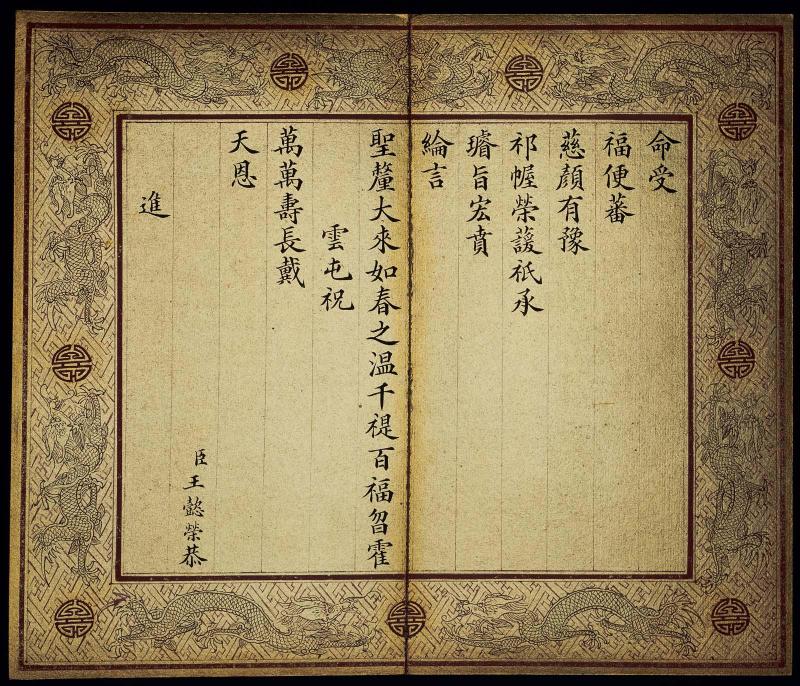 命受
福便蕃
慈顏有豫
祁幄榮護祇承
璿旨宏賁
綸言
聖釐大來如春之温千禔百福曶霍
雲屯祝
萬萬壽長戴
天恩
臣王懿榮恭
進